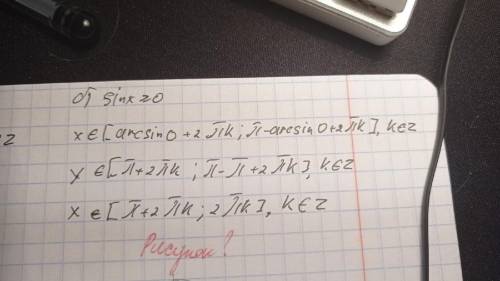 б) sinx≥0
x∈[arcsin0+2πk; π-arcsin0+2πk], k∈Z
Z
x∈[π+2πk; π-π+2πk], k∈Z
x∈[π+2πk; 2πk], k∈Z
Рисунок?